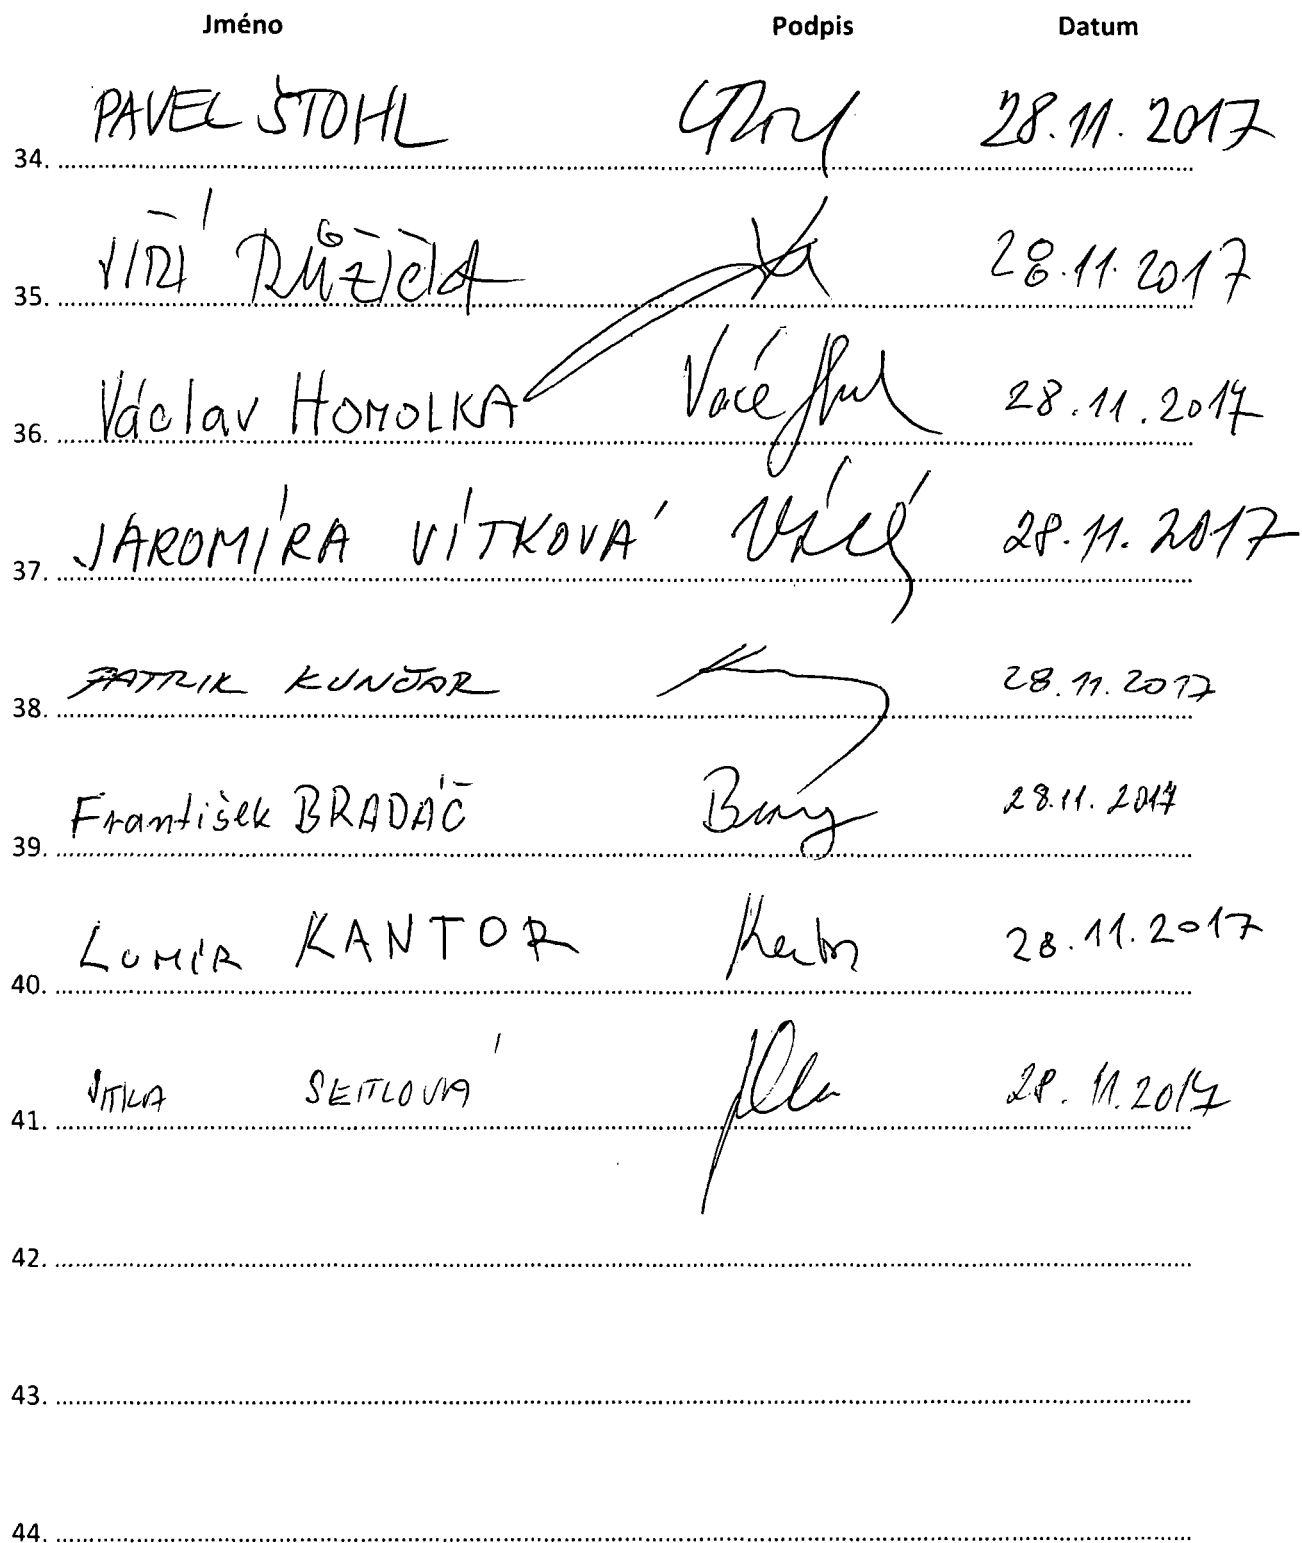 Jméno Podpis Datum
34. PAVEL ŠTOHL 28.11.2017
35. JIŘÍ RŮŽIČKA 28.11.2017
36. Václav HOMOLKA 28.11.2017
37. JAROMÍRA VÍTKOVÁ 28.11.2017
38. PATRIK KUNČAR 28.11.2017
39. František BRADÁČ 28.11.2017
40. LUMÍR KANTOR 28.11.2017
41. JITKA SEITLOVÁ 28.11.2017
42.
43.
44.